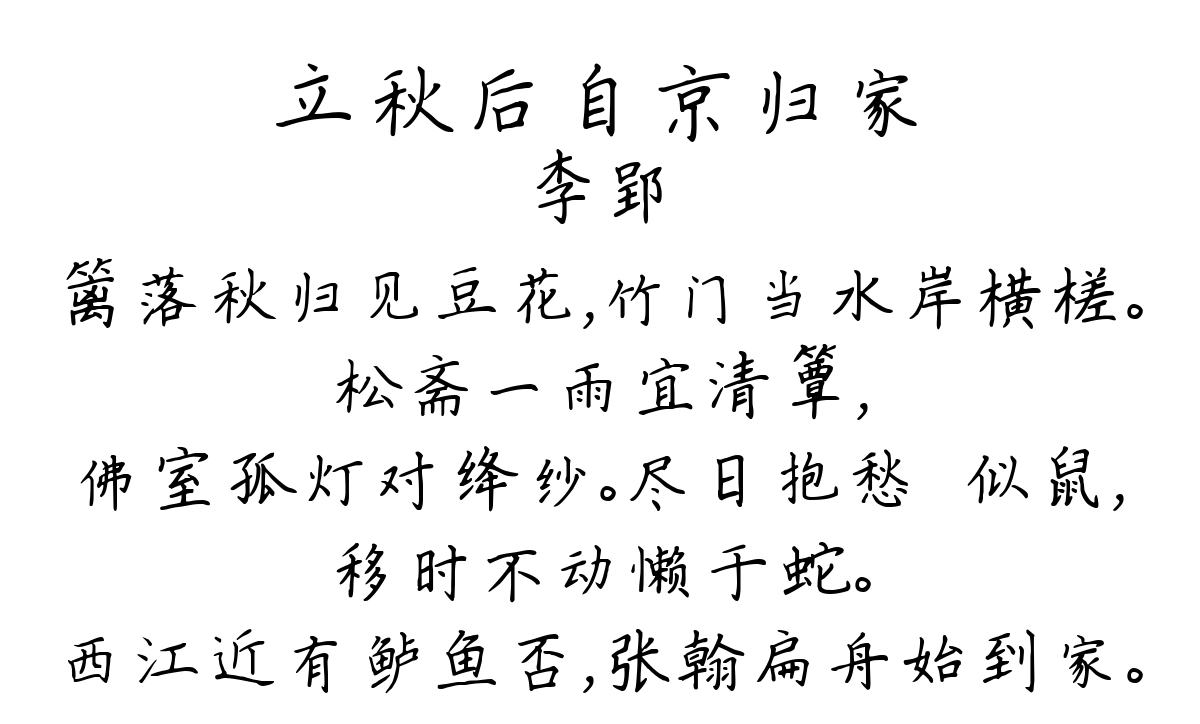 立秋后自京归家
李郢
篱落秋归见豆花,竹门当水岸横槎。
松斋一雨宜清簟,
佛室孤灯对绛纱。尽日抱愁 似鼠,
移时不动懒于蛇。
西江近有鲈鱼否,张翰扁舟始到家。